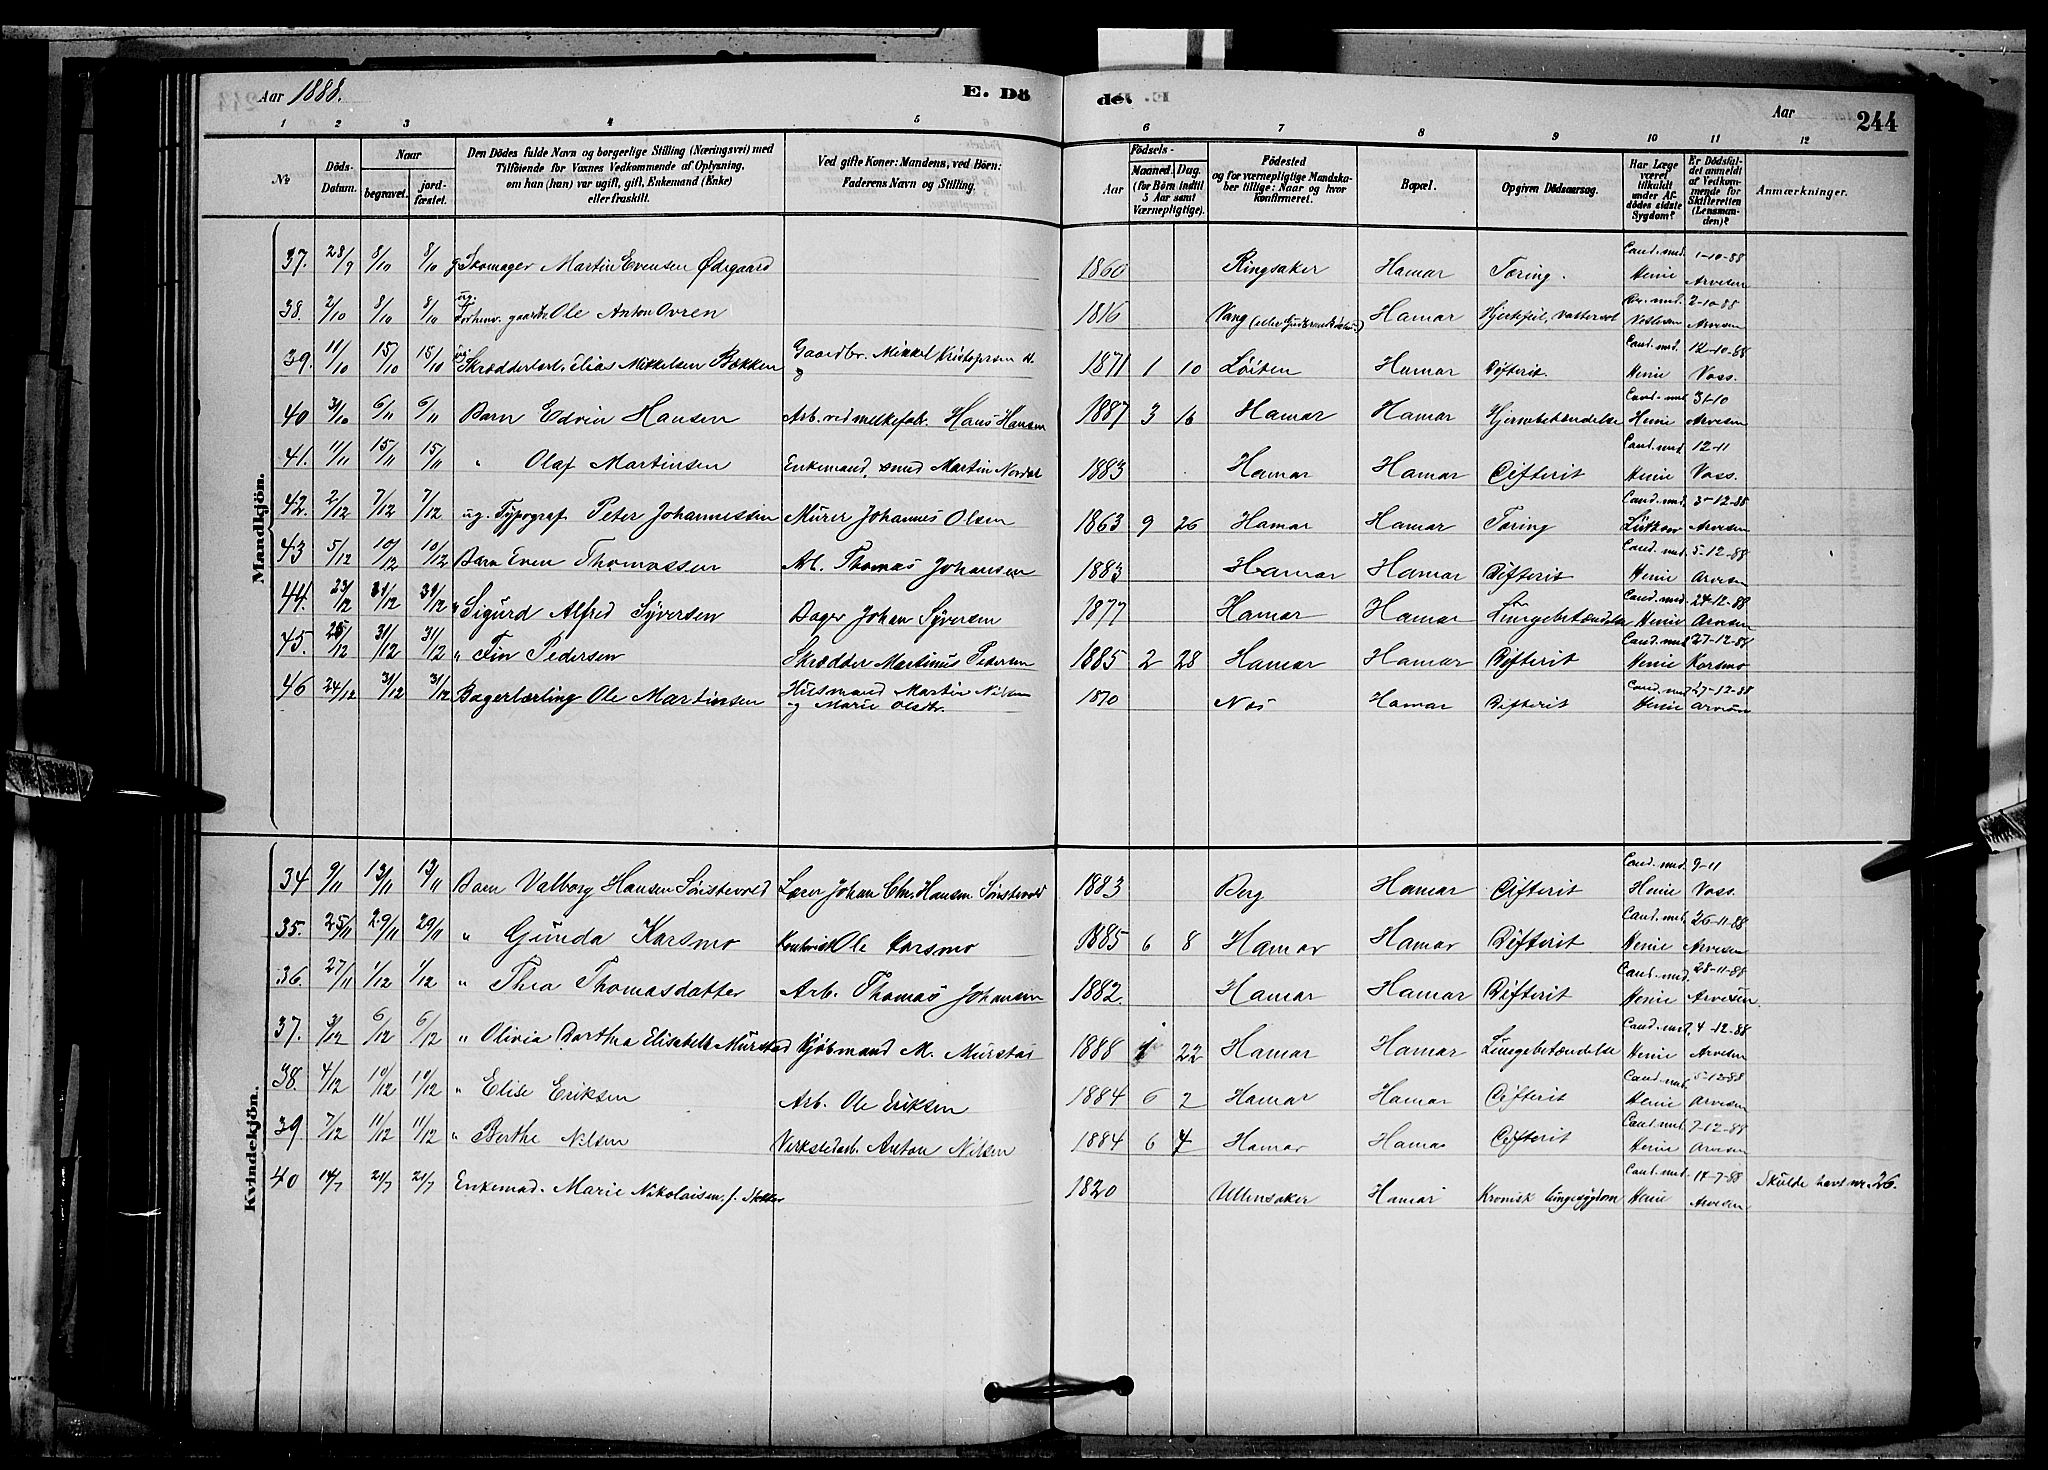 Aar 1888. E. Dö de. Aar 244
1 2 3 4 5 6 7 8 9 10 11 12
No Döds-Datum. Naar begravet. jordfæstet. Den Dödes fulde Navn og borgerlige Stilling (Næringsvei) med Tilföiende for Voxnes Vedkommende af Oplysning, om han (hun) var ugift, gift, Enkemand (Enke) eller fraskilt. Ved gifte Koner: Mandens, ved Börn: Faderens Navn og Stilling. Födsels- Aar Maaned. Dag. (for Börn indtil 5 Aar samt Værnepligtige). Födested og for værnepligtige Mandskaber tillige: Naar og hvor konfirmeret. Bopæl. Opgiven Dödsaarsag. Har Læge været tilkaldt under Afdödes sidste Sygdom? Er Dödsfaldet anmeldt af Vedkommende for Skifteretten (Lensmanden)? Anmærkninger.
Mandkjön.
37. 28/9 8/10 8/10 g. Skomager Martin Evensen Ødegaard 1860 Ringsaker Hamar Tæring. Cand. med. Henie 1-10-88 Arvesen
38. 2/10 8/10 8/10 ug. Forhenv. gaardbr. Ole Anton Ovren 1816 Vang Hamar Hjertefeil, vattersot 2-10-88 Arvesen
39. 11/10 15/10 15/10 ug. Skrædderlærl. Elias Mikkelsen Bækken Gaardbr. Mikkel Kristofersen 1871 1 10 Löiten Hamar Difterit. Cand. med. Henie 12-10-88 Voss.
40 31/10 6/11 6/11 Barn Edvin Hansen Arb. ved melkefabr. Hans Hansen 1887 3 16 Hamar Hamar Hjernebetændelse Cand. med Henie 31-10 Arvesen
41. 11/11 15/11 15/11 " Olaf Martinsen Enkemand, smed Martin Nordal 1883 Hamar Hamar Difterit Cand. med. Henie 12-11 Voss.
42. 2/12 7/12 7/12 ug. Typograf Peter Johannessen Murer Johannes Olsen 1863 9 26 Hamar Hamar Tæring Cand. med. Lützow 3-12-88 Arvesen
43 5/12 10/12 10/12 Barn Even Thomassen Arb. Thomas Johansen 1883 Hamar Hamar Difterit Cand. med. Henie 5-12-88 Arvesen
44. 23/12 31/12 31/12 " Sigurd Alfred Syversen Bager Johan Syversen 1877 Hamar Hamar Lungebetændelse Cand. med. Henie 24-12-88 Arvesen
45. 25/12 31/12 31/12 " Fin Pedersen Skrædder Martinus Pedersen 1885 2 28 Hamar Hamar Difterit Cand. med Henie 27-12-88 Korsmo
46 24/12 31/12 31/12 Bagerlærling Ole Martinsen Husmand Martin Nilsen og Marie Olsdtr. 1870 Næs Hamar Difterit Cand. med Henie 27-12-88 Arvesen
Kvindekjön.
34 9/11 13/11 13/11 Barn Valborg Hansen Sönstevold Lærer Johan Chr. Hansen Sönstevold 1883 Berg Hamar Difterit Cand. med. Henie 9-11 Voss.
35. 25/11 29/11 29/11 " Gunda Korsmo Kontorist Ole Korsmo 1885 6 8 Hamar Hamar Difterit Cand. med. Henie 26-11-88 Arvesen
36. 27/11 1/12 1/12 " Thea Thomasdatter Arb. Thomas Johansen 1882. Hamar Hamar Difterit Cand. med. Henie 28-11-88 Arvesen.
37. 3/12 6/12 6/12 " Olivia Bartha Elisabeth Murstad Kjöbmand M. Murstad 1888 22 Hamar Hamar Lungebetændelse Cand. med. Henie 4-12-88 Arvesen
38. 4/12 10/12 10/12 " Elise Eriksen Arb. Ole Eriksen 1884 6 2 Hamar Hamar Difterit Cand. med. Henie 5-12-88 Arvesen
39. 7/12 11/12 11/12 " Berthe Nilsen Verkstedarb. Anton Nilsen 1884 6 4 Hamar Hamar Difterit Cand. med. Henie 7-12-88 Arvesen
40 14/7 21/7 21/7 Enkemad. Marie Nikolaisen, f. 1820 Ullensaker Hamar Kronisk lungesygdom Cand. med. Henie 17-7-88 Arvesen Skulde havt nr. 26.